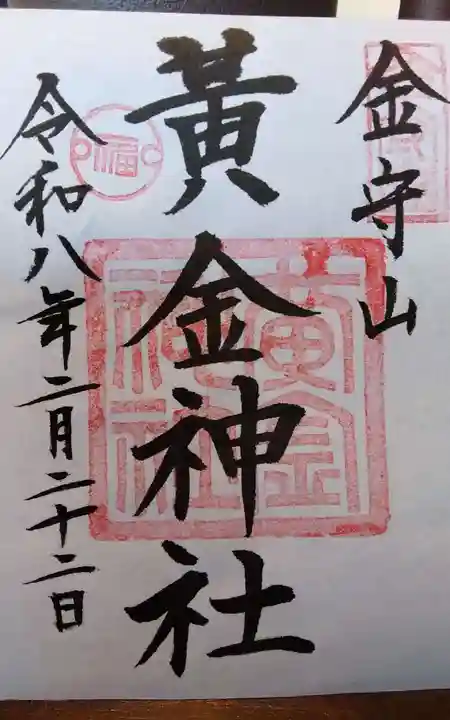 金守山
黃金神社
令和八年二月二十二日
黄金
神社
福